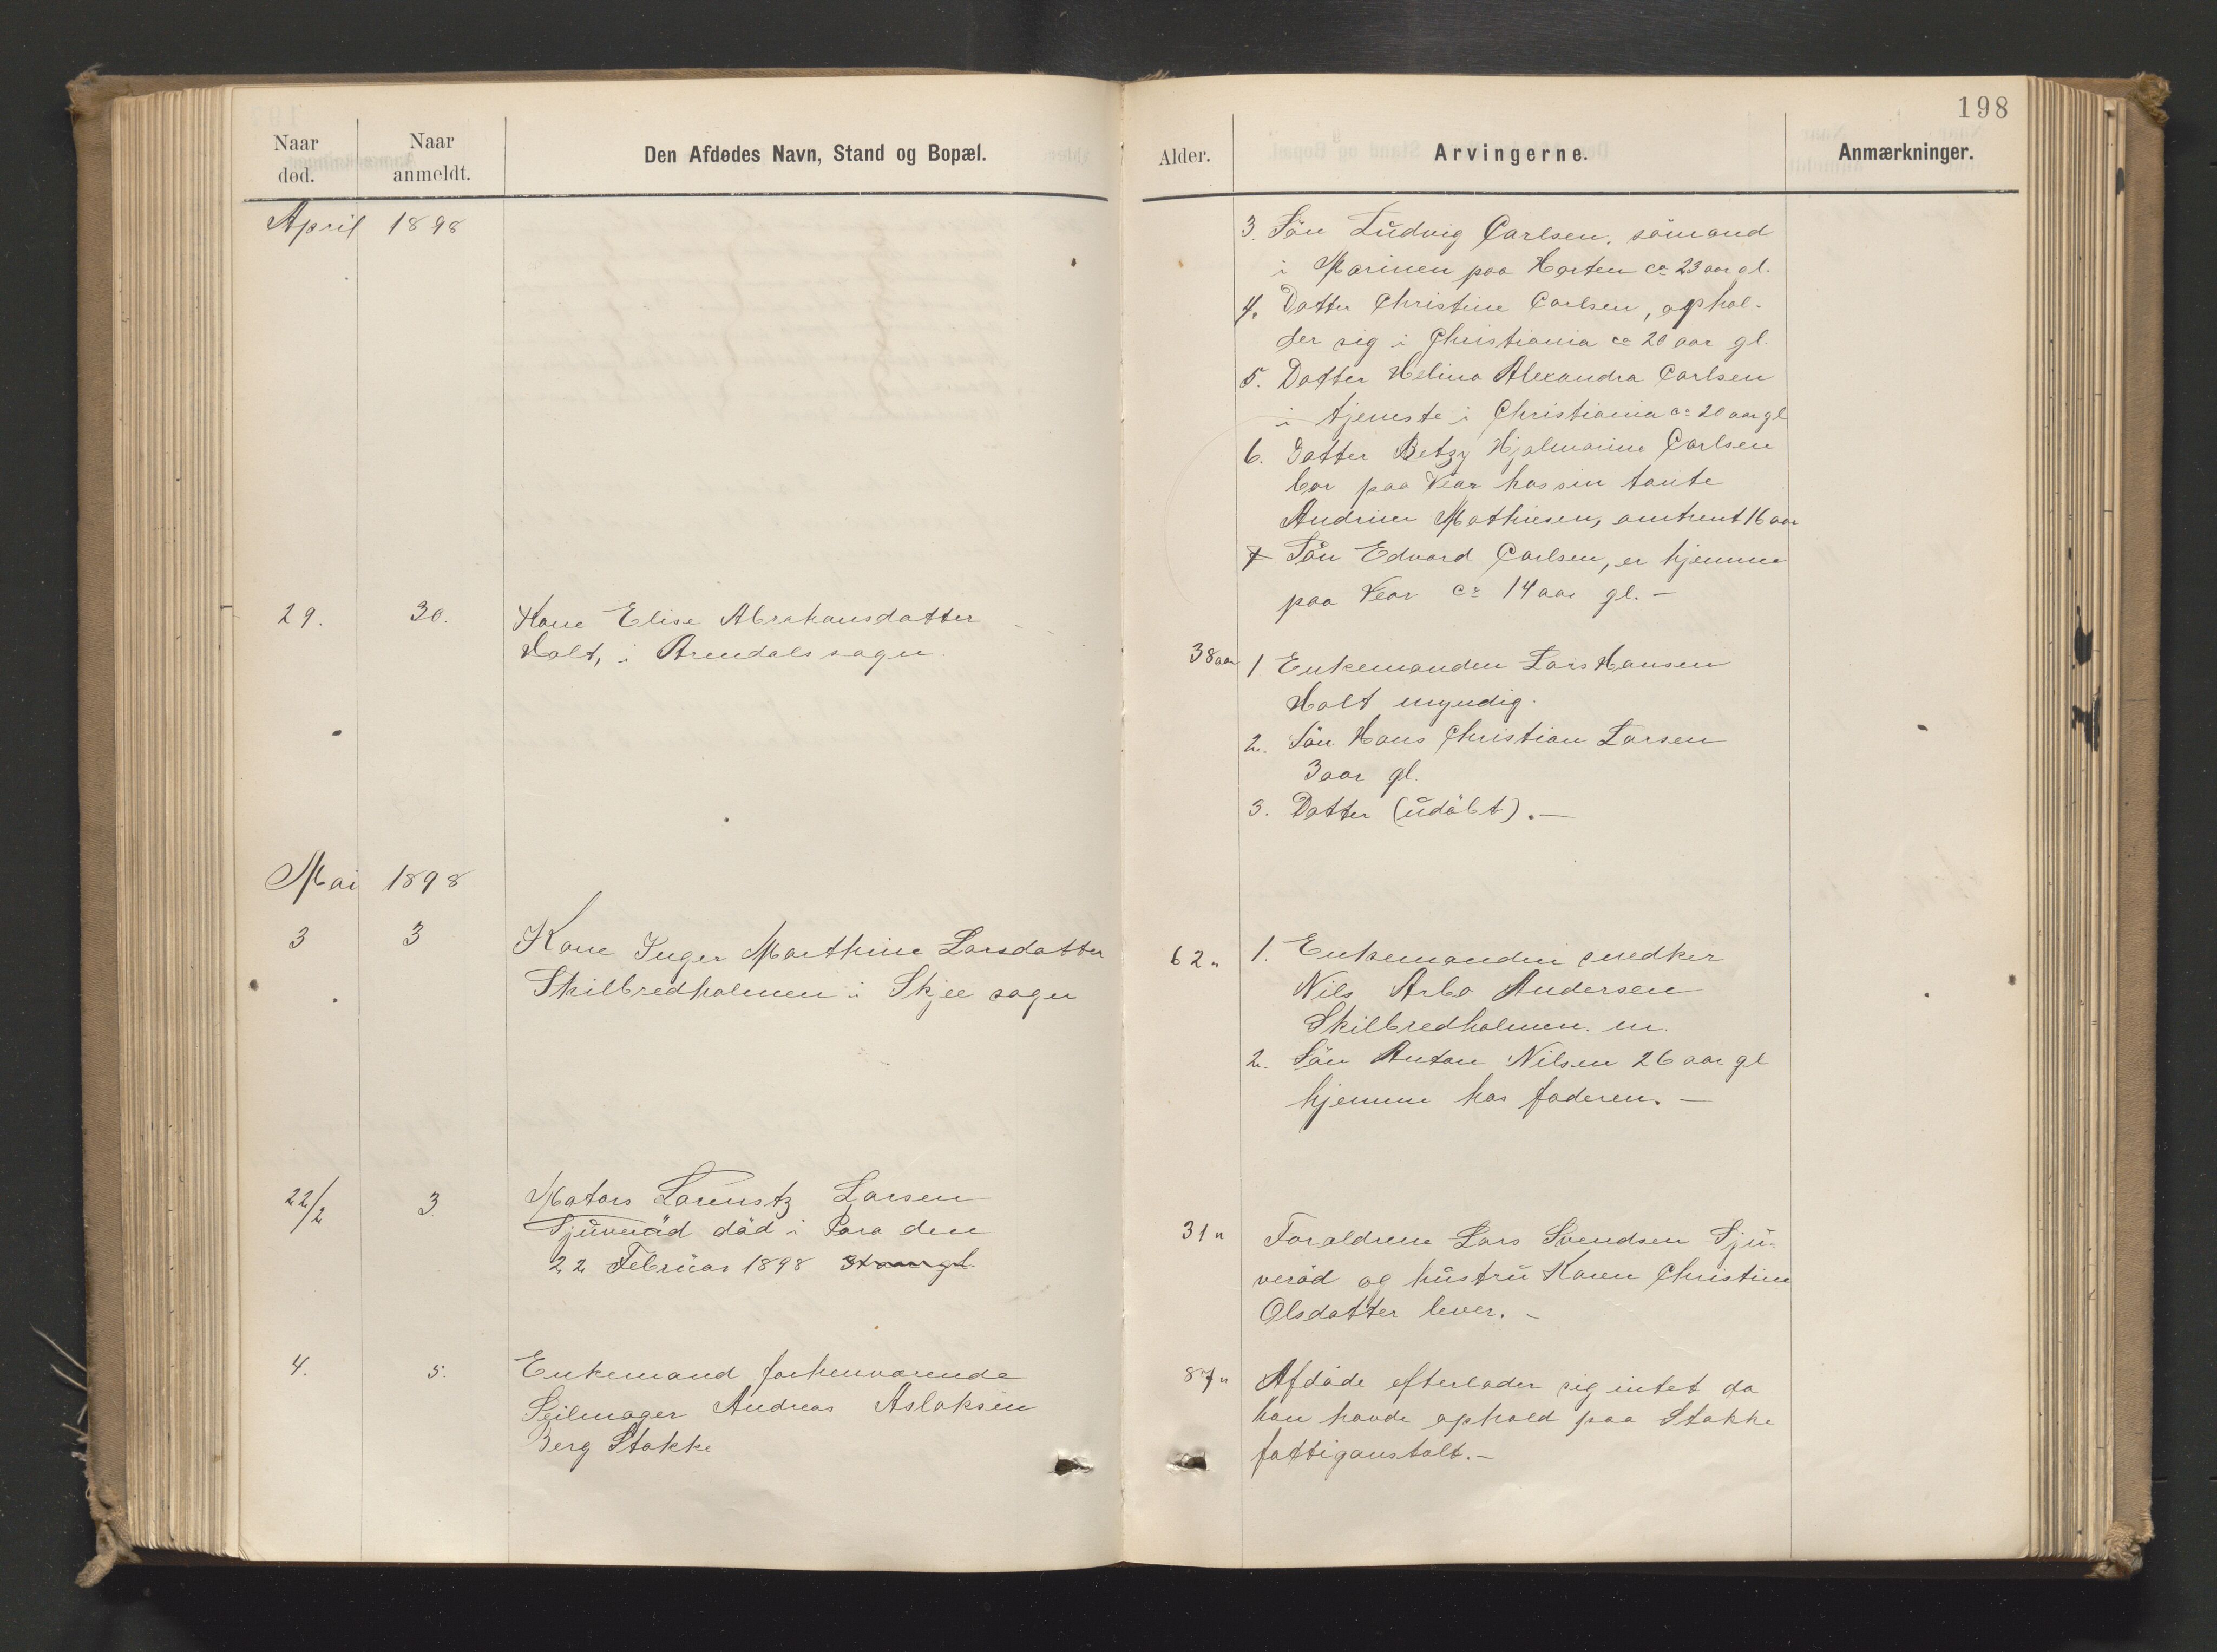 198
Naar død.
Naar anmeldt.
Den Afdødes Navn, Stand og Bopæl.
Alder.
Arvingerne.
Anmærkninger.
April 1898
3. Sön Ludvig Carlsen, sömand
i Marinen paa Horten ca 23 aar gl.
4. Datter Christine Carlsen, ophol-
der sig i Christiania ca 20 aar gl.
5. Datter Helina Alexandra Carlsen
i tjeneste i Christiania ca 20 aar gl
6. Datter Betzy Hjalmarine Carlsen
bor paa Vear hos sin tante
Andrine Mathisen, omtrent 16 aar
7 Sön Edvard Carlsen, er hjemme
paa Vear ca 14 aar gl. –
29. 30. Kone Elise Abrahamsdatter
Holt, i Arendals sogn.
38 aar 1 Enkemanden Lars Hansen
Holt myndig.
2. Sön Hans Christian Larsen
3 aar gl.
3. Datter (udöbt). –
Mai 1898
3 3 Kone Inger Marthine Larsdatter
Skilbredholmen i Skjee sogn
62 " 1. Enkemanden snedker
Nils Arbo Andersen
Skilbredholmen. m.
2. Sön Anton Nilsen 26 aar gl
hjemme hos faderen. –
22/2 3 Matros Lorenstz Larsen
Sjuveröd död i Para den
22 Februar 1898 31 aar gl.
31 " Foraldrene Lars Svendsen Sju-
veröd og hustru Karen Christine
Olsdatter lever. –
4. 5. Enkemand forhenvarende
Seilmager Andreas Aslaksen
Berg Stokke
87 " Afdöde efterlader sig intet da
han havde ophold paa Stokke
fattiganstalt. –